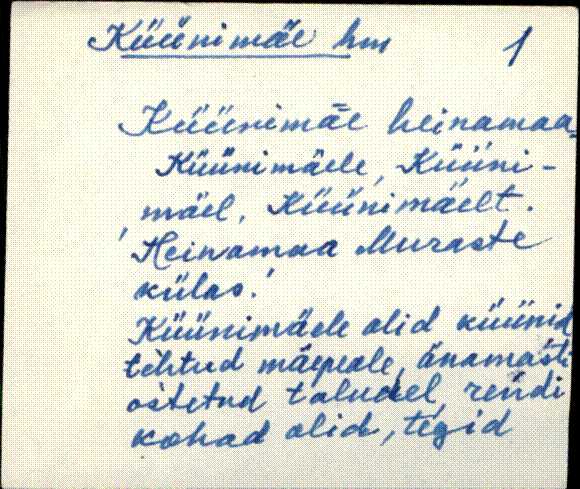 Küünimäe hm 1
Küünimäe heinamaa,
Küünimäele, Küüni-
mäel, Küünimäelt.
'Heinamaa Muraste
külas.'
Küünimäele olid küünid
tehtud mäepeale, änamasti
ostetud talud, rendi
kohad olid, tegid